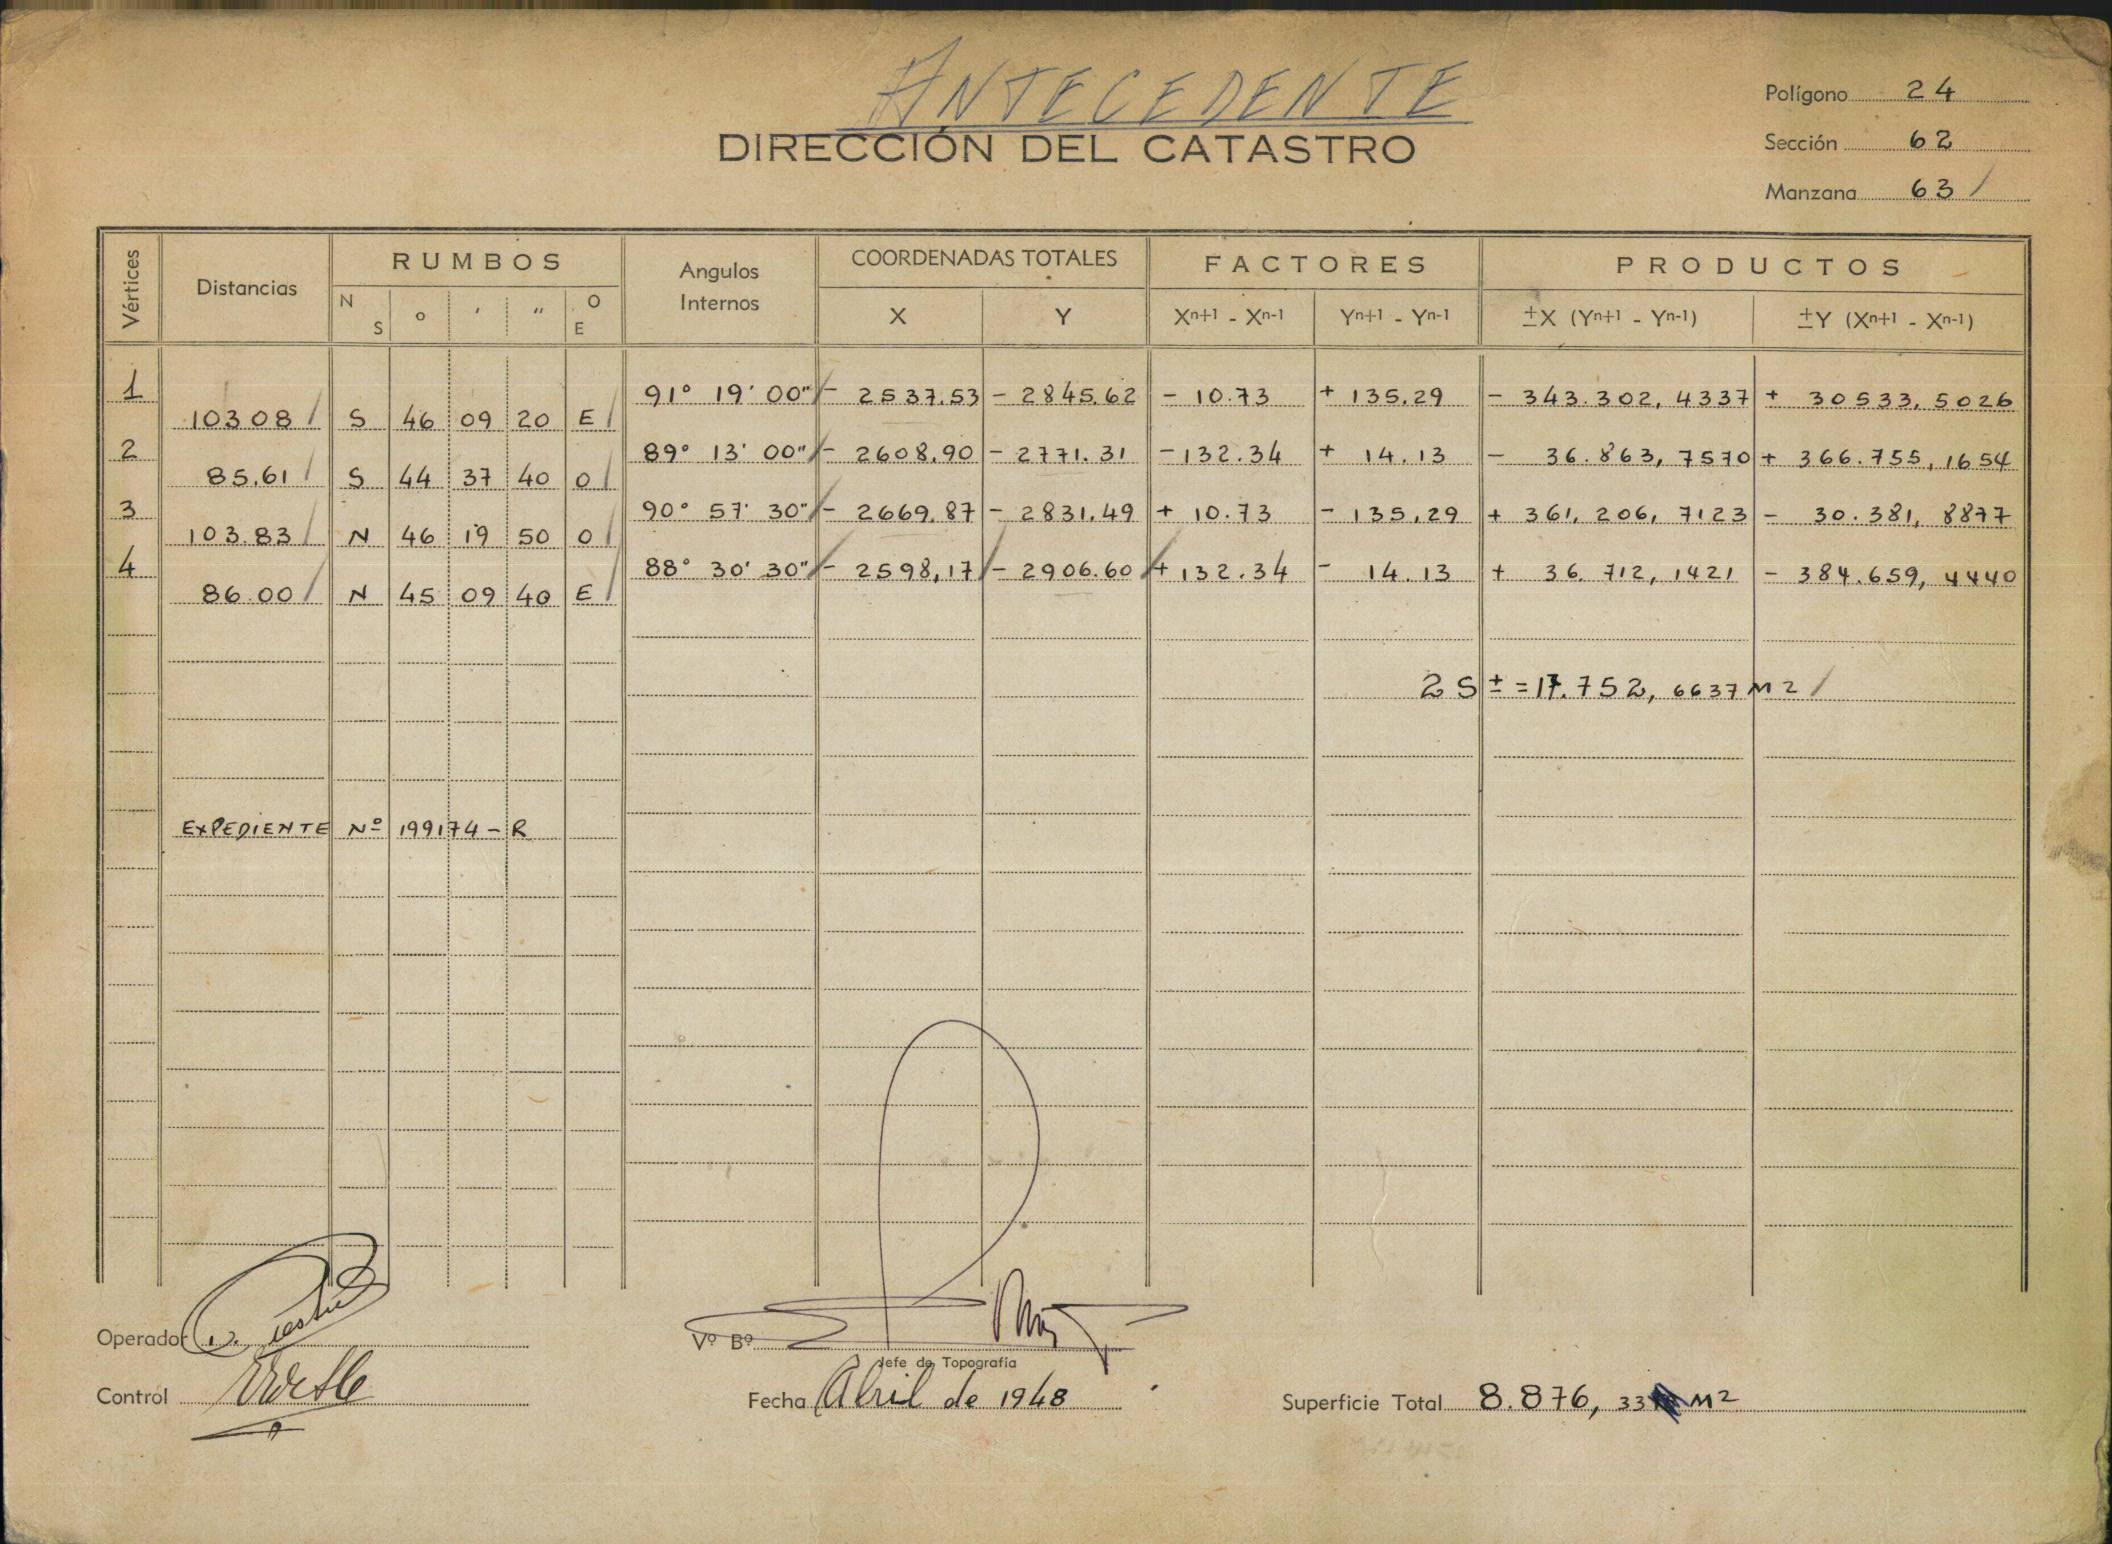 ANTECEDENTE
DIRECCIÓN DEL CATASTRO
Polígono 24
Sección 62
Manzana 63 /
Vértices Distancias RUMBOS Angulos Internos COORDENADAS TOTALES FACTORES PRODUCTOS
N S o ' " O E X Y Xn+1 - Xn-1 Yn+1 - Yn-1 ±X (Yn+1 - Yn-1) ±Y (Xn+1 - Xn-1)
1 91° 19' 00" - 2537.53 - 2845.62 - 10.73 + 135.29 - 343.302, 4337 + 30533, 5026
103 08 / S 46 09 20 E /
2 89° 13' 00" - 2608.90 - 2771.31 - 132.34 + 14.13 - 36.863, 7570 + 366.755, 1654
85.61 / S 44 37 40 O /
3 90° 57' 30" - 2669.87 - 2831.49 + 10.73 - 135.29 + 361.206, 7123 - 30.381, 8877
103.83 / N 46 19 50 O /
4 88° 30' 30" - 2598,17 - 2906.60 + 132.34 - 14.13 + 36.712, 1421 - 384.659, 4440
86.00 / N 45 09 40 E /
2 S ± = 17.752, 6637 M2 /
EXPEDIENTE Nº 199174 - R
Operador
Vº Bº
Jefe de Topografía
Control
Fecha Abril de 1948
Superficie Total 8.876, 33 M2